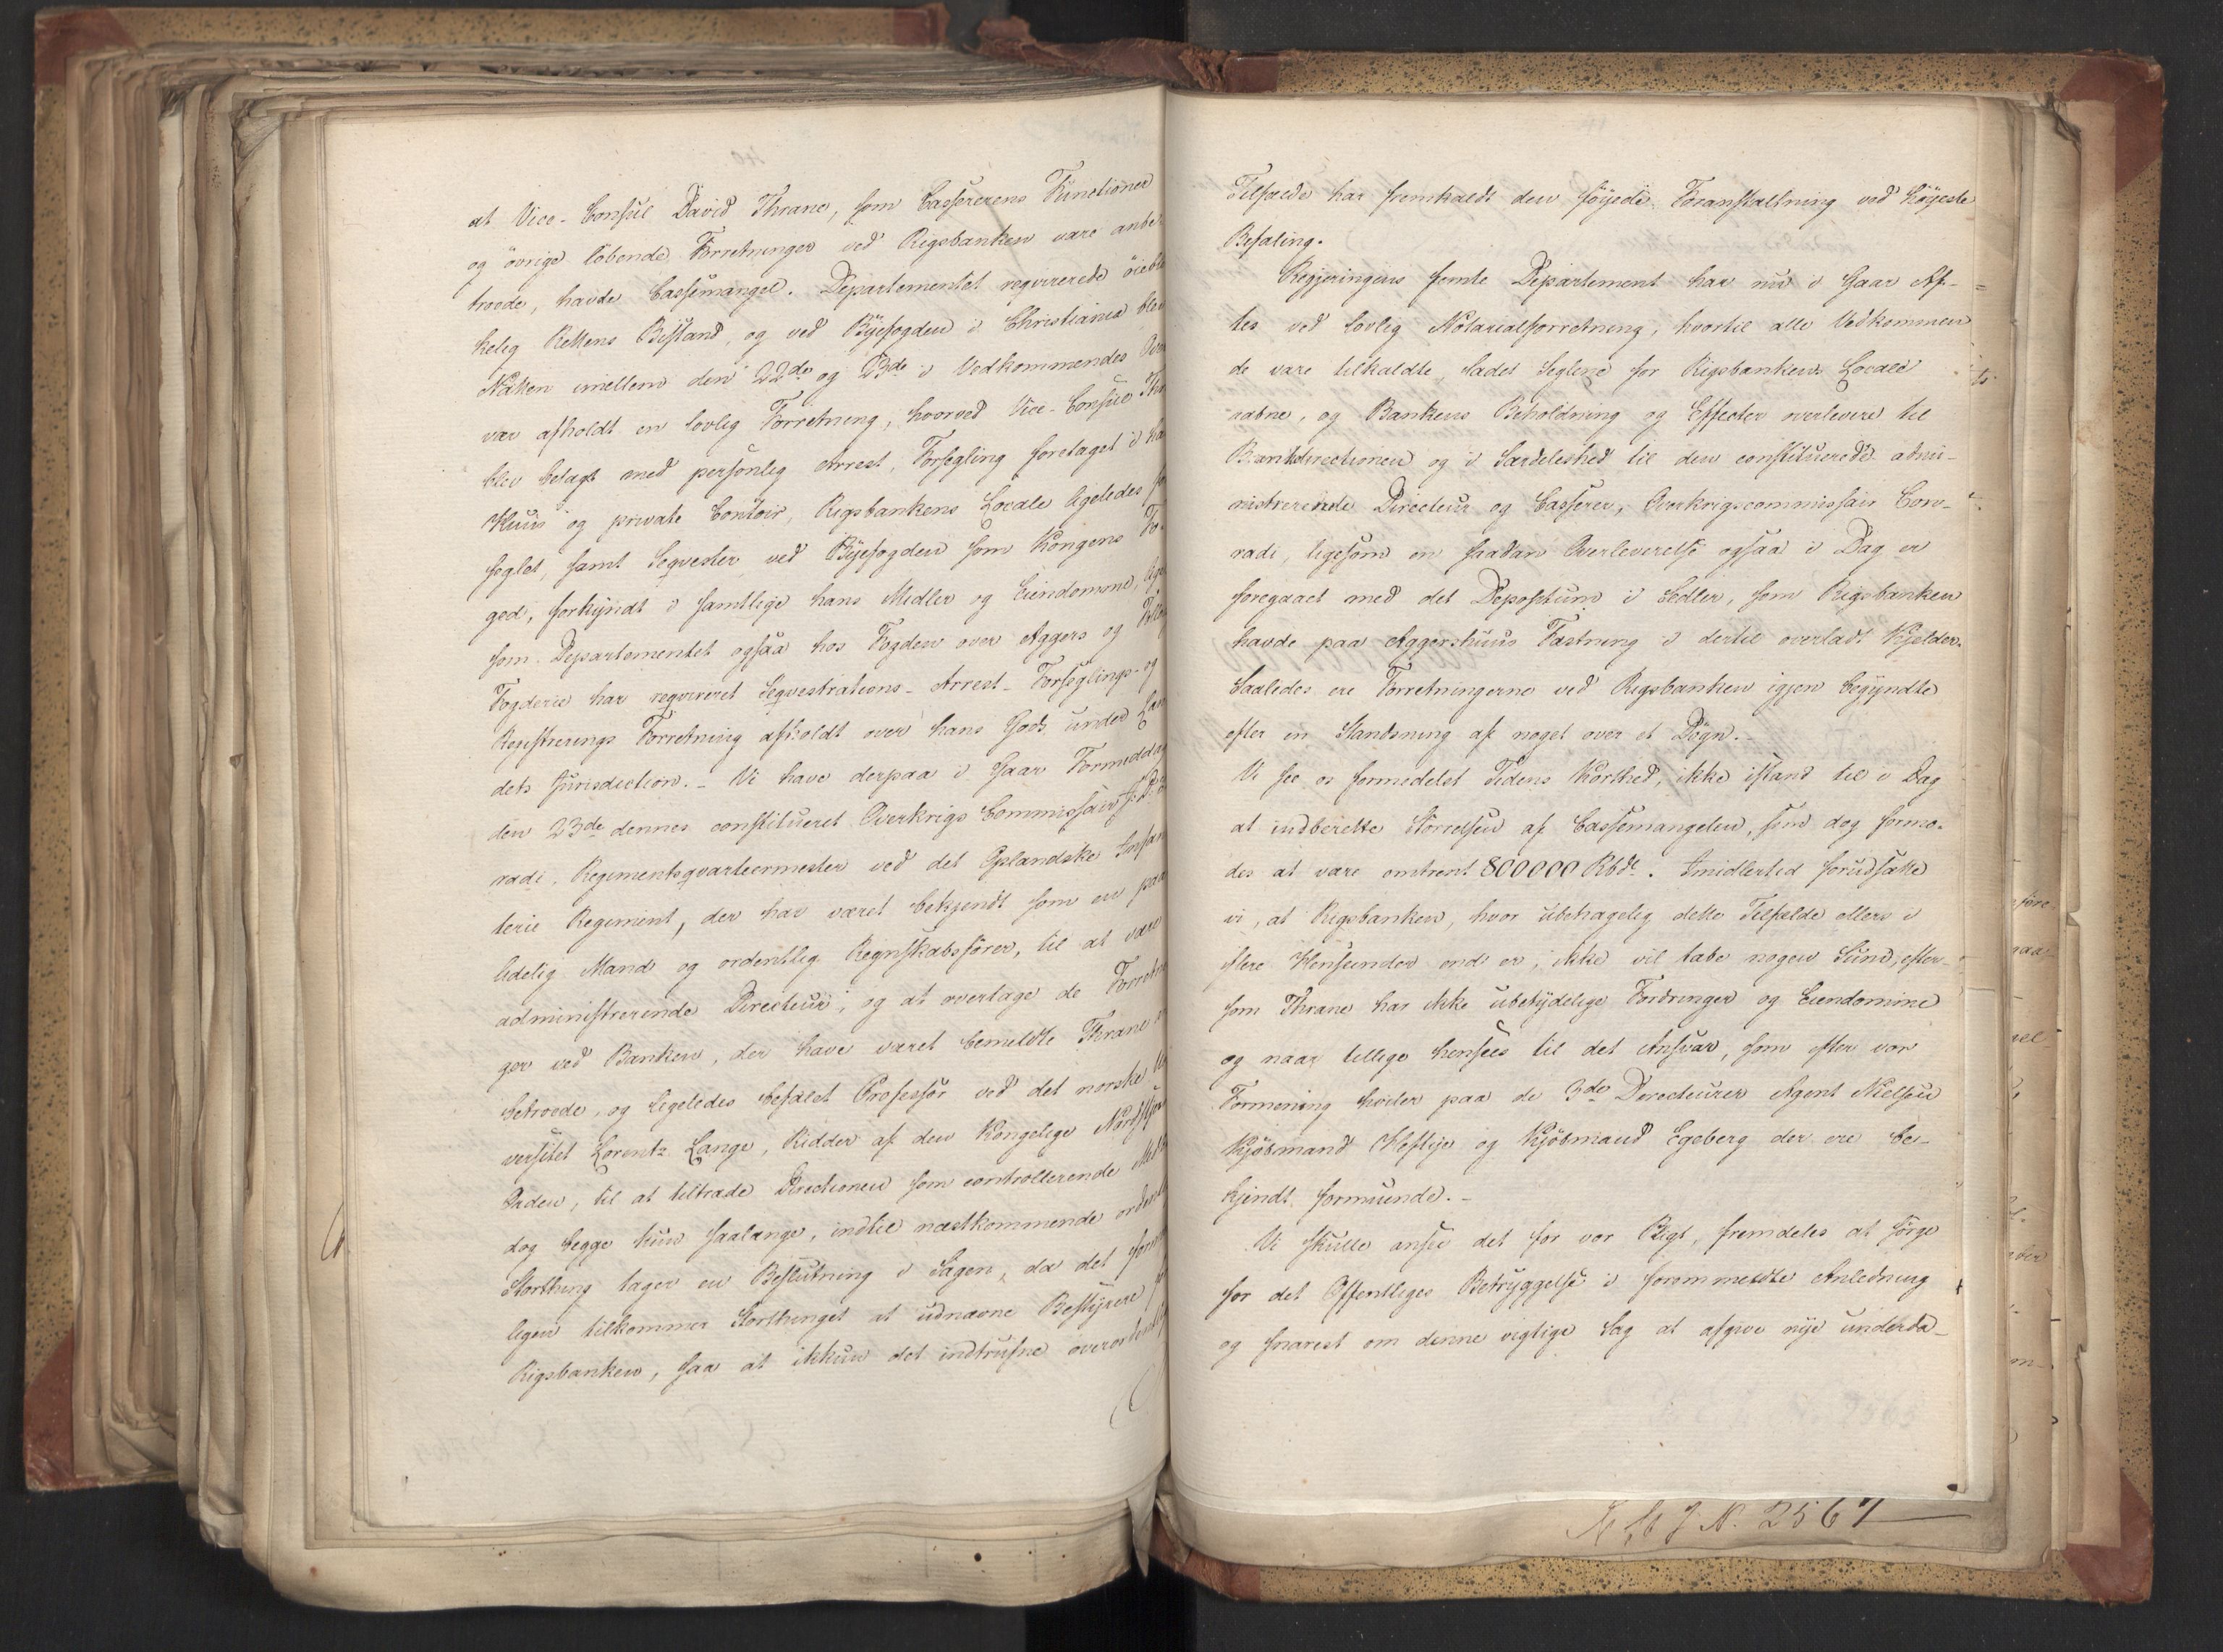 at Vice-Consul David Thrane, som Cassererens Functioner
og övrige löbende Forretninger ved Rigsbanken vare anbe-
troede, havde Cassemangel. Departementet reqvirerede öieb
kelig Rettens Bistand, og ved Byefogden i Christiania blev
Natten imellem den 22de og 23de i Vedkommendes
var afholdt en lovlig Forretning, hvorved Vice-Consul Thr
blev belagt med personlig Arrest, Forsegling foretaget i ha
Huus og private Contoir, Rigsbankens Locale ligeledes fo
seglet, samt Seqvester ved Byefogden som Kongens Fo
ged, forkyndt i samtlige hans Midler og Eiendomme, lige
som Departementet ogsaa hos Fogden over Aggers og Follo
Fogderie har reqvireret Seqvestrations- Arrest- Forseglings- og
Registrerings Forretning afholdt over hans Gods under Lan
dets Jurisdiction. - Vi have derpaa i Gaar Formiddag
den 23de dennes constitueret Overkrigs Commissair
radi, Regimentsqvarteermester ved det Oplandske Infan
terie Regiment, der har været bekjendt som en paa
lidelig Mand og ordentlig Regnskabsförer, til at være
administrerende Directeur, og at overtage de Forretnin
ger ved Banken, der have været bemeldte Thrane
betroede, og ligeledes befalet Professor ved det norske Uni
versitet Lorentz Lange, Ridder af den Kongelige Nordstjerne
Orden, til at tiltræde Directionen som controllerende Med
dog begge kun saalænge, indtil næstkommende ordent
Storthing tager en Beslutning i Sagen, da det
ligen tilkommer Storthinget at udnævne Bestyrere
Rigsbanken, saa at ikkun det indtrufne overordentlig
Tilfælde har fremkaldt den föyede Foranstaltning ved Höyeste
Befaling.
Regjeringens femte Departement har nu i Gaar Af-
tes ved lovlig Notarialforretning, hvortil alle Vedkommen
de vare tilkaldte, ladet Seglene for Rigsbankens Locale
aabne, og Bankens Beholdning og Effecter overlevere til
Bankdirectionen og i Særdeleshed til den constituerede admi-
nistrerende Directeur og Casserer, Overkrigscommissair Con-
radi, ligesom en saadan Overleverelse ogsaa i Dag er
foregaaet med det Depositum i Sedler, som Rigsbanken
havde paa Aggershuus Fæstning i dertil overladt Kjelder.
Saaledes ere Forretningerne ved Rigsbanken igjen begyndte
efter en Standsning af noget over et Dögn. -
Vi see os formedelst Tidens Korthed, ikke istand til i Dag
at indberette Störrelsen af Cassemangelen, som dog formo-
des at være omtrent 800000 Rbdr. Imidlertid forudsætte
vi, at Rigsbanken, hvor ubehagelig dette Tilfælde ellers i
flere Henseender end er, ikke vil tabe nogen Sum, efter-
som Thrane har ikke ubetydelige Fordringer og Eiendomme
og naar tillige hensees til det Ansvar, som efter vor
Formening hviler paa de 3de Directeurer Agent Nielsen
Kjöbmand Heftye og Kjöbmand Egeberg der ere be-
kjendt formuende. -
Vi skulle ansee det for vor Pligt, fremdeles at sörge
for det Offentliges Betryggelse i forommeldte Anledning
og snarest om denne vigtige Sag at afgive nye underda-
N. 2567